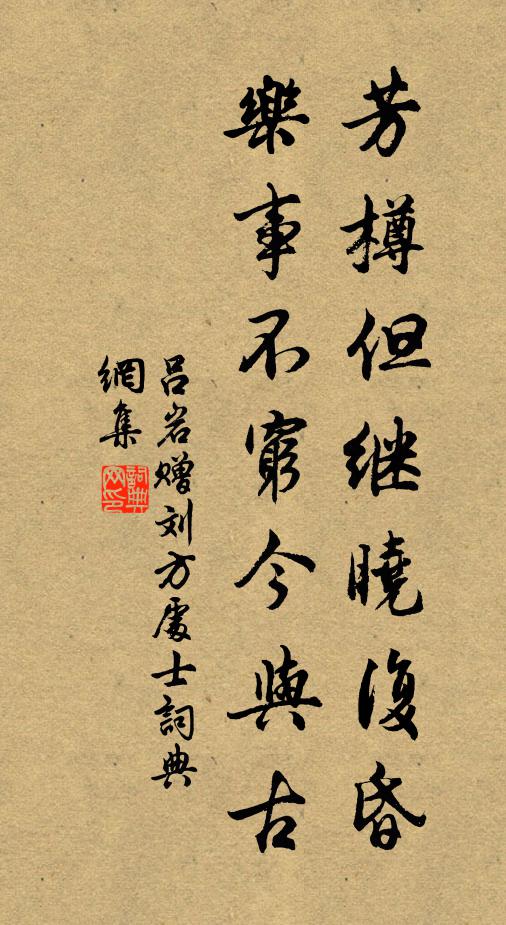 芳樽但继曉復昏
樂事不窮今與古
吕岩赠刘方處士詞典
網集
詞典網印